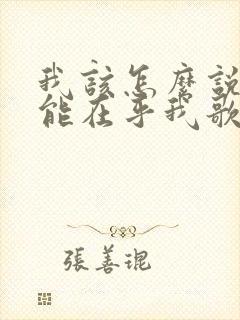 我該怎麼說
能在乎我歌
張善琨